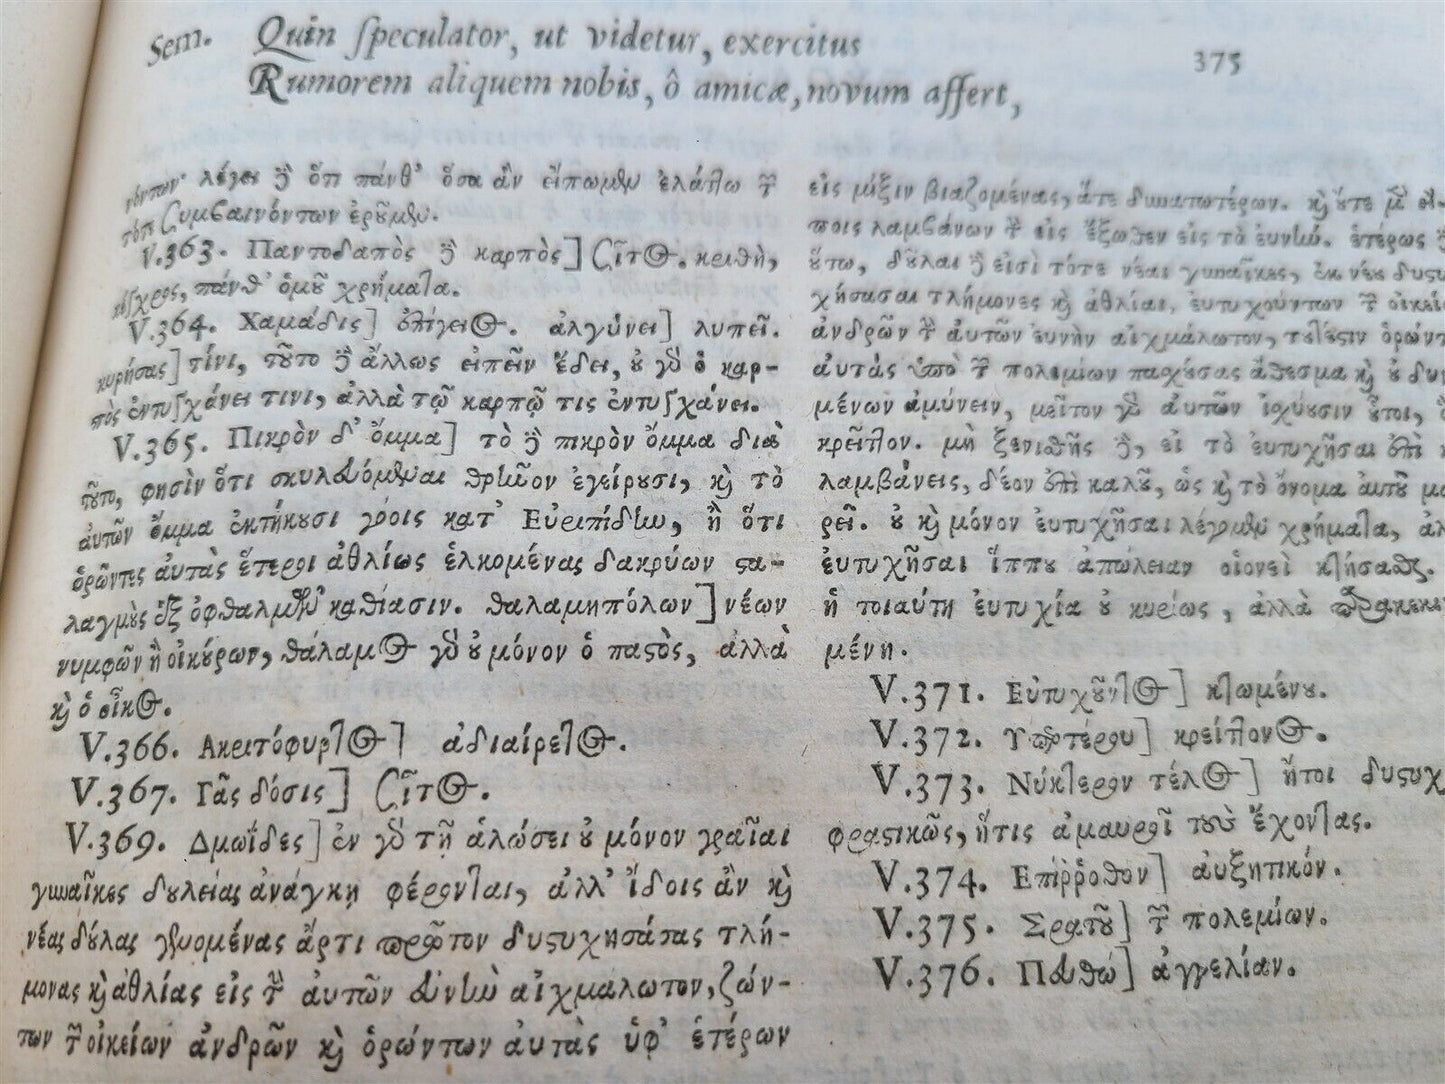 Sem. Quin speculator, ut videtur, exercitus
375
Rumorem aliquem nobis, ô amicæ, novum affert,
λέγει ὅτι πάνθ' ὅσα ἂν εἴπωμεν ἐλάττω τῶν
συμβαινόντων ἐροῦμεν.
V.363. Παντοδαπὸς δὲ καρπὸς] σῖτος. κριθὴ,
πάνθ' ὁμοῦ χρήματα.
V.364. Χαμάδις] ἐπίγειος. ἀλγύνει] λυπεῖ.
κυρήσας] τίνι, τοῦτο δὲ ἄλλως εἰπεῖν ἔδει, οὐ γὰρ ὁ καρ-
πὸς ἐντυγχάνει τινι, ἀλλὰ τῷ καρπῷ τις ἐντυγχάνει.
V.365. Πικρὸν δ' ὄμμα] τὸ δὲ πικρὸν ὄμμα διὰ
τοῦτο, φησὶν ὅτι σκυλευόμεναι θρῆνον ἐγείρουσι, καὶ τὸ
αὐτῶν ὄμμα ἐκτήκουσι γόοις κατ' Εὐριπίδην, ἢ ὅτι
ὁρῶντες αὐτὰς ἕτεροι ἀθλίως ἑλκομένας δακρύων στα-
λαγμοὺς ἐξ ὀφθαλμῶν καθίασιν. θαλαμηπόλων] νέων
νυμφῶν ἢ οἰκούρων, θάλαμος γὰρ οὐ μόνον ὁ παστὸς, ἀλλὰ
καὶ ὁ οἶκος.
V.366. Ακριτόφυρτος] ἀδιαίρετος.
V.367. Γᾶς δόσις] σῖτος.
V.369. Δμωΐδες] ἐν γὰρ τῇ ἁλώσει οὐ μόνον γραῖαι
γυναῖκες δουλείας ἀνάγκῃ φέρονται, ἀλλ' ἴδοις ἂν καὶ
νέας δούλας γενομένας ἄρτι πρῶτον δυστυχησάσας τλή-
μονας καὶ ἀθλίας εἰς τὴν αὐτῶν εὐνὴν αἰχμάλωτον, ζών-
των τῶν οἰκείων ἀνδρῶν καὶ ὁρώντων αὐτὰς ὑφ' ἑτέρων
εἰς μίξιν βιαζομένας, ἅτε δυνατωτέρων. καὶ οὕτω μὲν
λαμβάνων τὸ εἰς ἔξωθεν εἰς τὸ εὐνήν. ἑτέρως
οὕτω, δοῦλαι δὲ εἰσὶ τότε νέαι γυναῖκες, ἐκ νέου δυστυ
χήσασαι τλήμονες καὶ ἀθλίαι, εὐτυχούντων τῶν οἰκεί
ἀνδρῶν τὴν αὐτῶν εὐνὴν αἰχμάλωτον, τουτέστιν ὁρώντ
αὐτὰς ὑπὸ τῶν πολεμίων πασχούσας ἄθεσμα καὶ οὐ δυν
μένων ἀμύνειν, μεῖον γὰρ αὐτῶν ἰσχύουσιν οὗτοι,
κρεῖττον. μὴ ξενισθῇς δὲ, εἰ τὸ εὐτυχῆσαι ἐπὶ
λαμβάνεις, δέον ἐπὶ καλοῦ, ὡς καὶ τὸ ὄνομα αὐτοῦ
ρεῖ. οὐ καὶ μόνον εὐτυχῆσαι λέγομεν χρήματα,
εὐτυχῆσαι ἵππου ἀπώλειαν οἱονεὶ κτήσασθαι.
ἡ τοιαύτη εὐτυχία οὐ κυρίως, ἀλλὰ
μένη.
V.371. Εὐτυχοῦντος] κτωμένου.
V.372. Υπερτέρου] κρείττονος.
V.373. Νύκτερον τέλος] ἤτοι δυστυχ
φραστικῶς, ἥτις ἀμαυροῖ τοὺς ἔχοντας.
V.374. Επίῤῥοθον] αὐξητικόν.
V.375. Στρατοῦ] τῶν πολεμίων.
V.376. Πευθὼ] ἀγγελίαν.